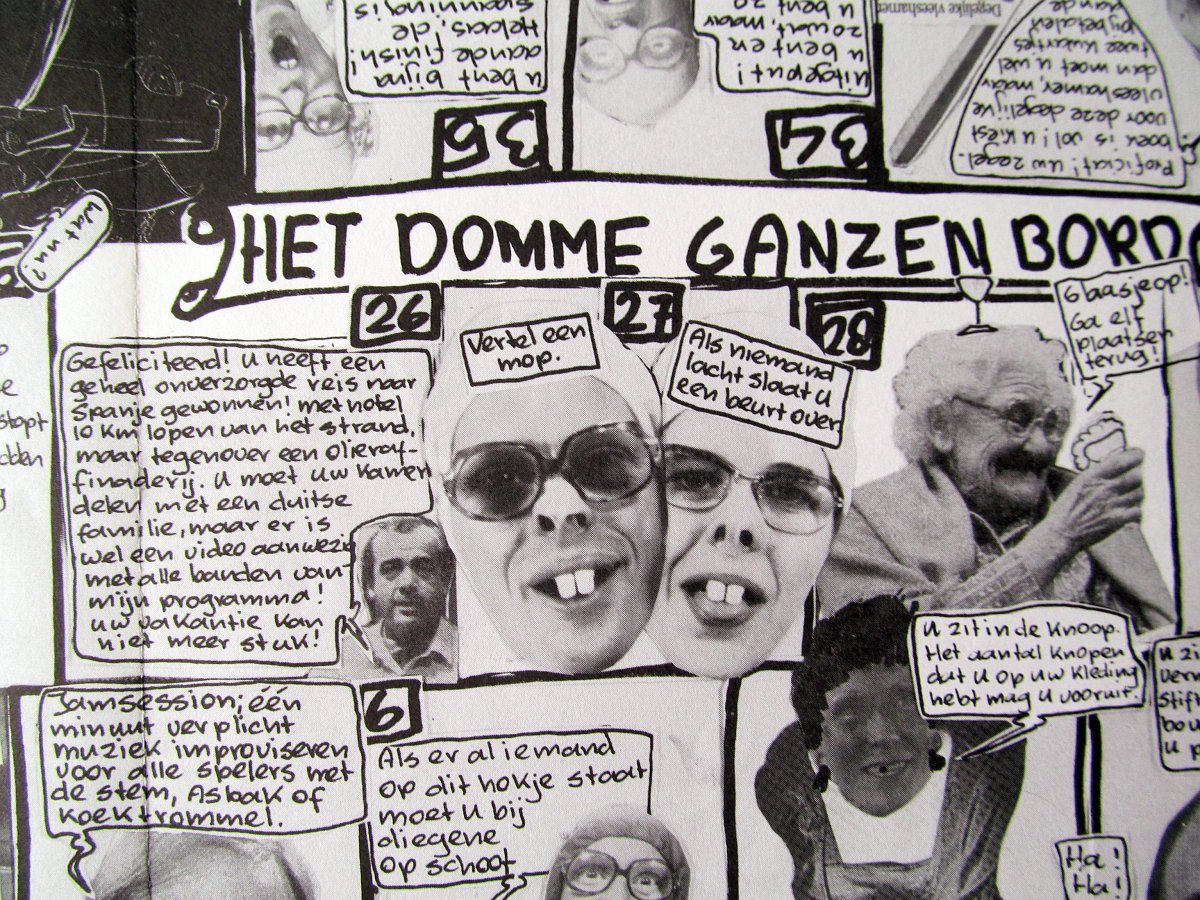 u bent bijna
aan de finish!
Helaas, de
spanning is
35
Uitgeput!
u bent en
zowat, maar
u bent 20
34
Degelijke vleeshamer
Proficiat! Uw zegel-
boek is vol! U kiest
voor deze degelijke
vleeshamer, maar
dan moet u wel
twee kwartjes
bijbetalen
aan de
Wat nu?
HET DOMME GANZEN BORD
26
Gefeliciteerd! U heeft een
geheel onverzorgde reis naar
Spanje gewonnen! met hotel
10 km lopen van het strand,
maar tegenover een olieraf-
finaderij. U moet uw kamer
delen met een duitse
familie, maar er is
wel een video aanwezig
met alle banden van
mijn programma!
uw vakantie kan
niet meer stuk!
27
Vertel een
mop.
Als niemand
lacht slaat u
een beurt over.
28
Glaasje op!
Ga elf
plaatsen
terug!
stopt
Jamsession; één
minuut verplicht
muziek improviseren
voor alle spelers met
de stem, Asbak of
koektrommel.
6
Als er al iemand
op dit hokje staat
moet u bij
diegene
op schoot
U zit in de knoop.
Het aantal knopen
dat u op uw kleding
hebt mag u vooruit.
U zi
Ha!
Ha!